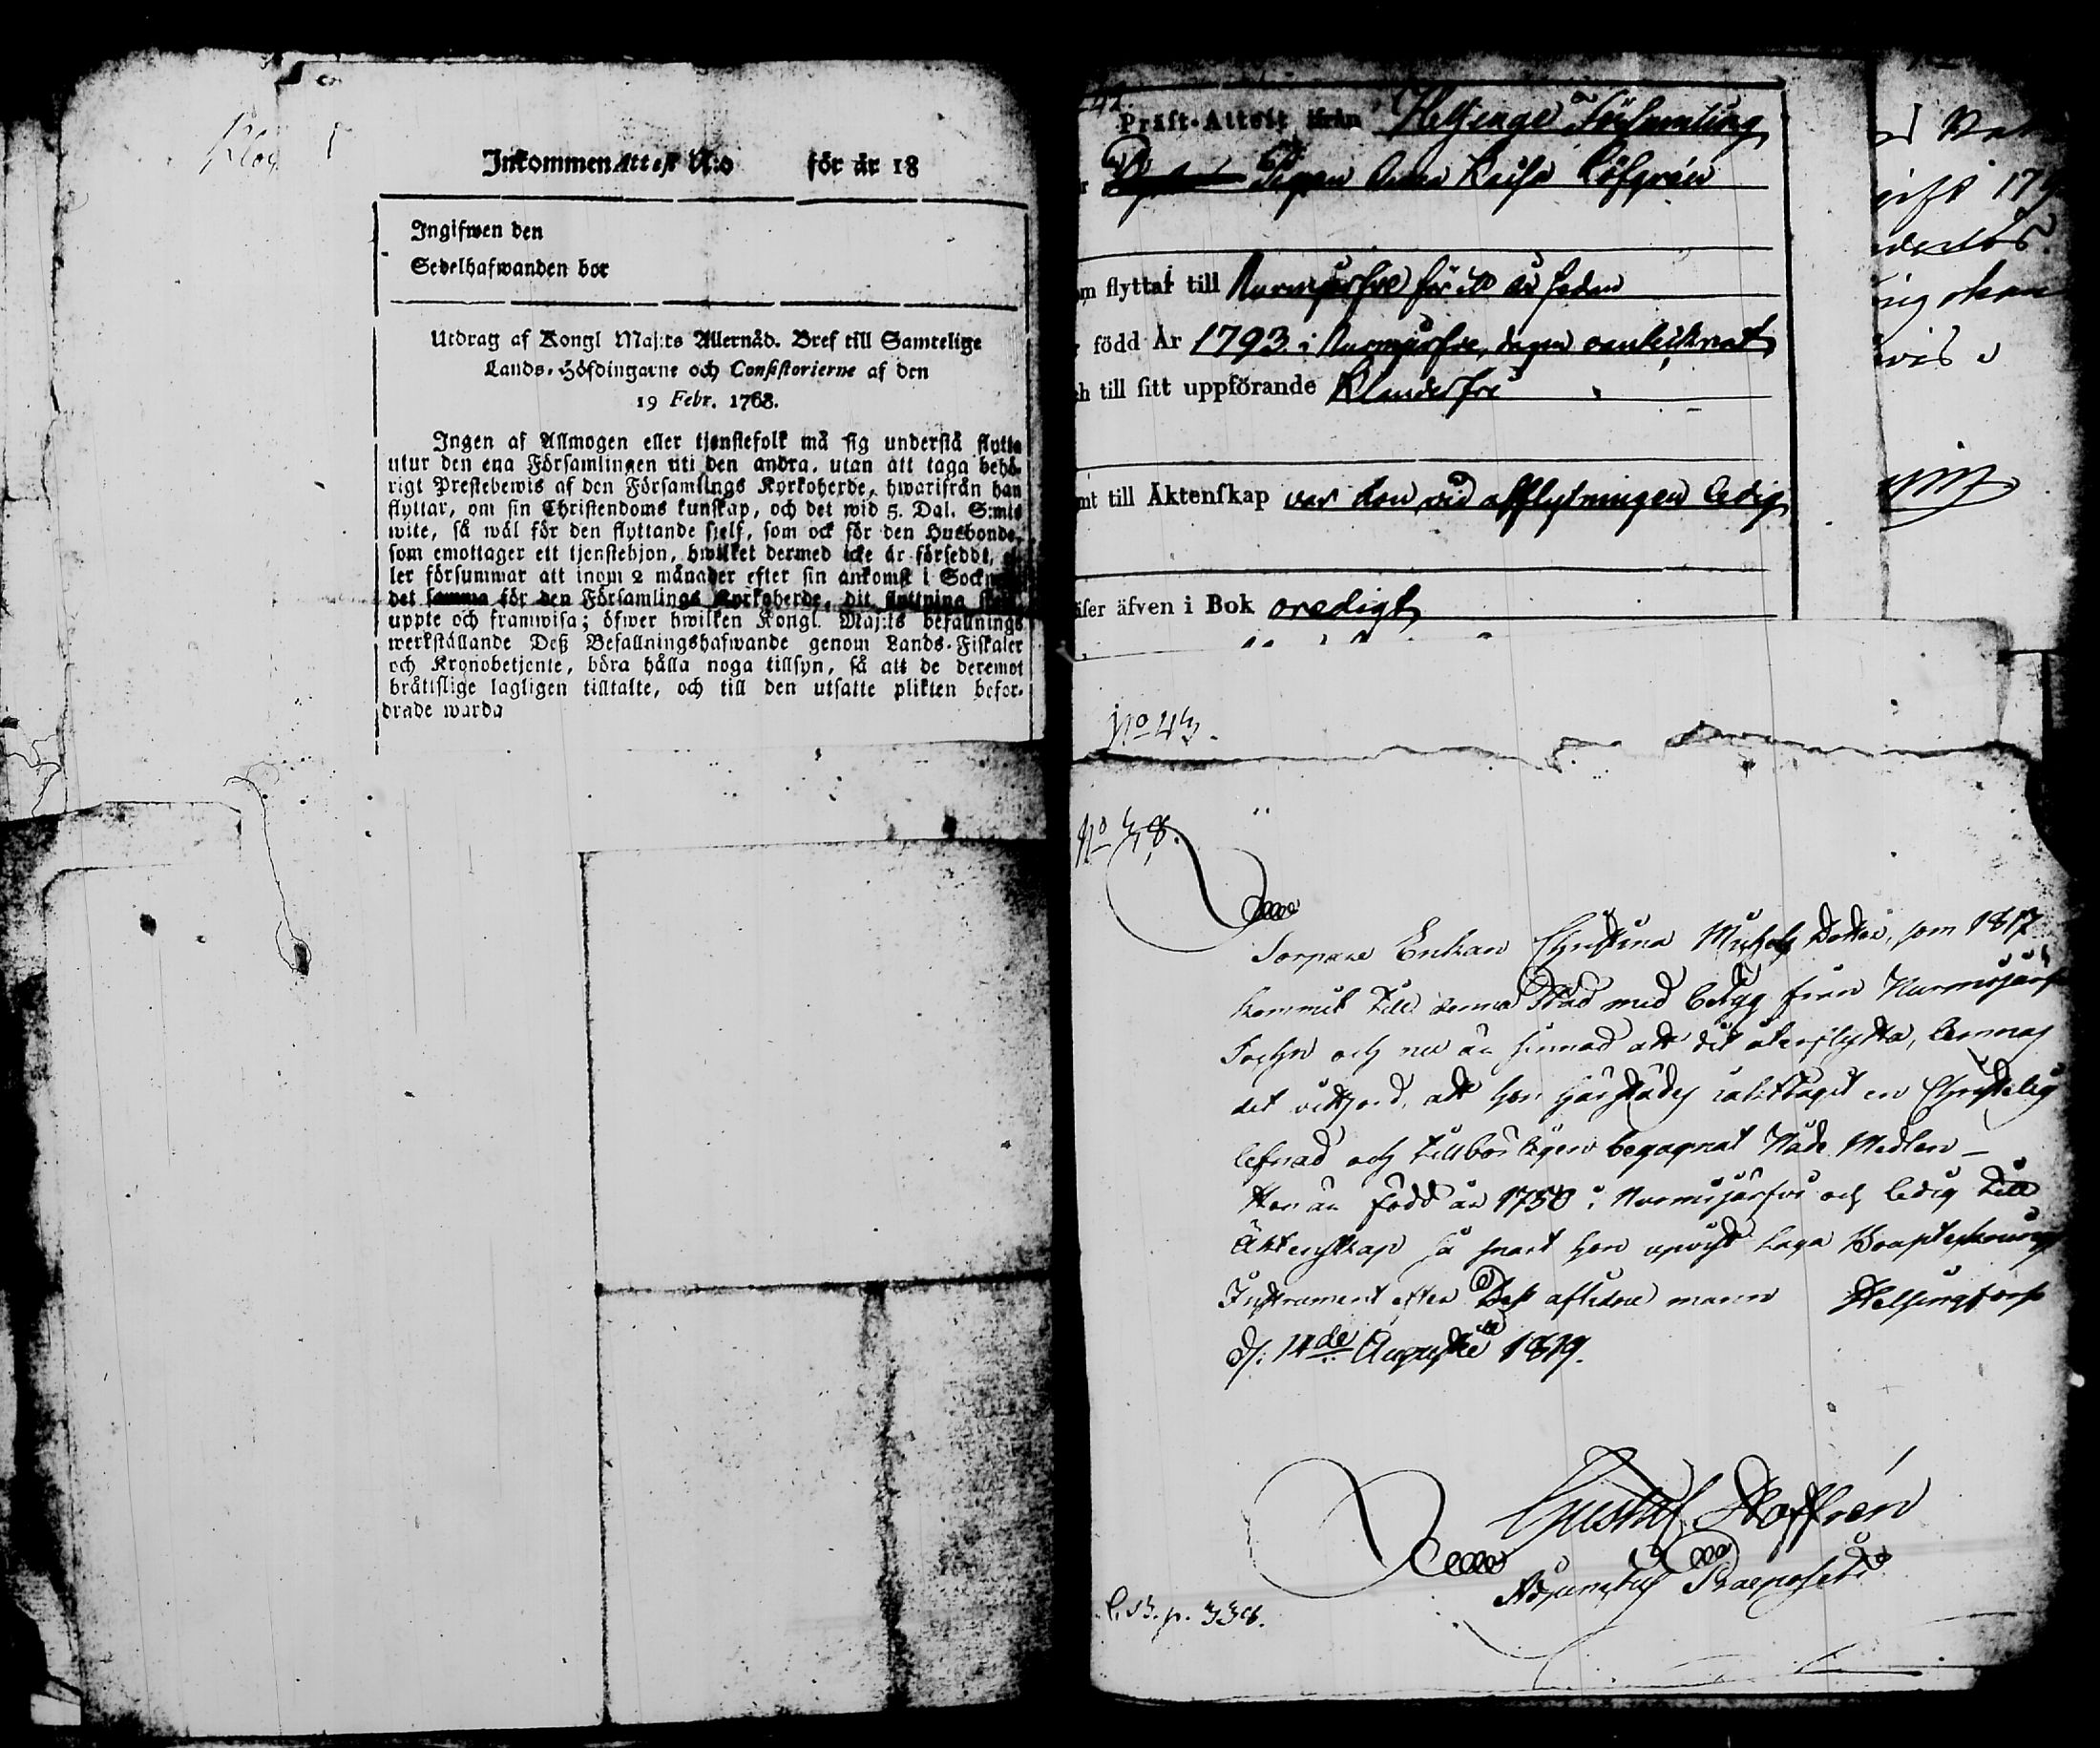 Inkommen Attest N:o för år 18
Ingifwen den
Sedelhafwanden bor
Utdrag af Kongl Maj:ts Allernåd. Bref till Samtelige
Lands-Höfdingarne och Consistorierne af den
19 Febr. 1768.
Ingen af Allmogen eller tjenstefolk må sig understå flytta
utur den ena Församlingen uti den andra, utan att taga behö-
rigt Prestebewis af den Församlings Kyrkoherde, hwarifrån han
flyttar, om sin Christendoms kunskap, och det wid 5. Dal. S:mts
wite, så wäl för den flyttande sjelf, som ock för den Husbonde,
som emottager ett tjenstehjon, hwilket dermed icke är försedt, el-
ler försummar att inom 2 månader efter sin ankomst i Sockn
det samma för den Församlings Kyrkoherde, dit flyttning
uppte och framwisa; öfwer hwilken Kongl. Maj:ts befallnings
werkställande Deß Befallningshafwande genom Lands-Fiskaler
och Kronobetjente, böra hålla noga tillsyn, så att de deremot
bråttslige lagligen tilltalte, och till den utsatte plikten befor-
drade warda
Präst-Attest ifrån Helsinge Församling
Pigan Anna Kaisa Löfgrén
flyttat till Nurmijärfve för ett år sedan
född År 1793. i Nurmijärfve, dagen oantecknat
till sitt uppförande Klanderfri
till Äktenskap var hon vid afflytningen ledig
äfven i Bok oredigt
No 43.
No 48.
Torpare Enkan Christina Michels Dotter, som 1817
kommit till denna Stad med betyg från Nurmijärf
Sochn och nu är sinnad att dit återflytta, lemnas
det vittsord, att hon härstädes iakttagit en Christelig
lefnad och tillbörligen begagnat Nåde Medlen —
Hon är född år 1750 i Nurmijärfvi och ledig till
Äktenskap så snart hon upvist laga Boupteckning
Instrument efter Dess aflidne mann Helsingfors
d: 14de Augusti 1819.
Gustaf Hoffrén
Adjunctus Praeposit:
L.B. p. 338.